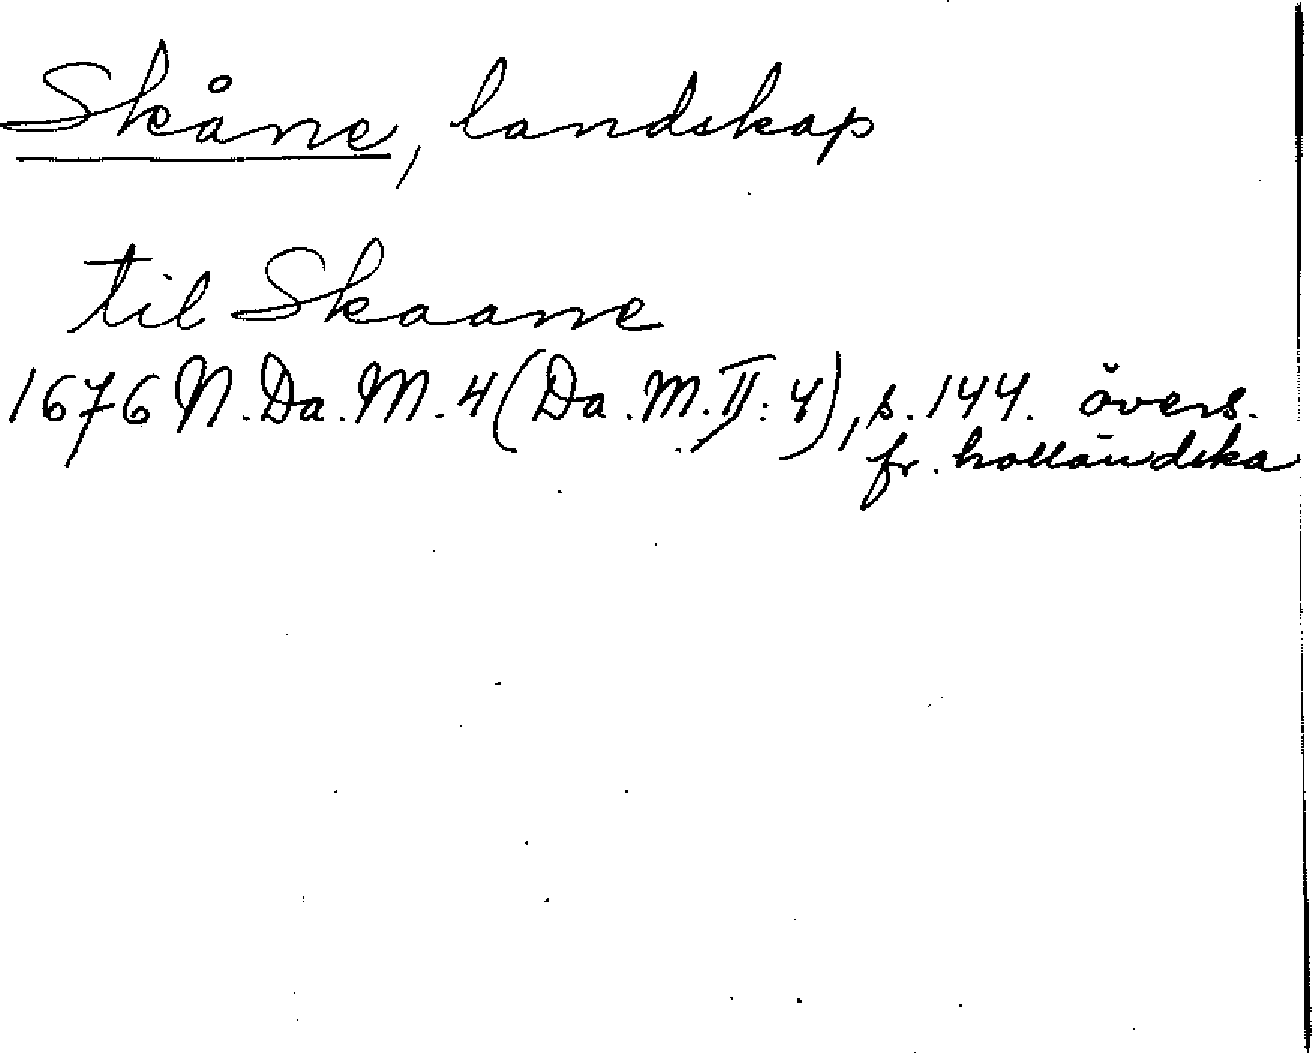 Skåne, landskap
til Skaane
1676 N. Da. M. 4 (Da. M. II: 4), s. 144. övers.
fr. holländska